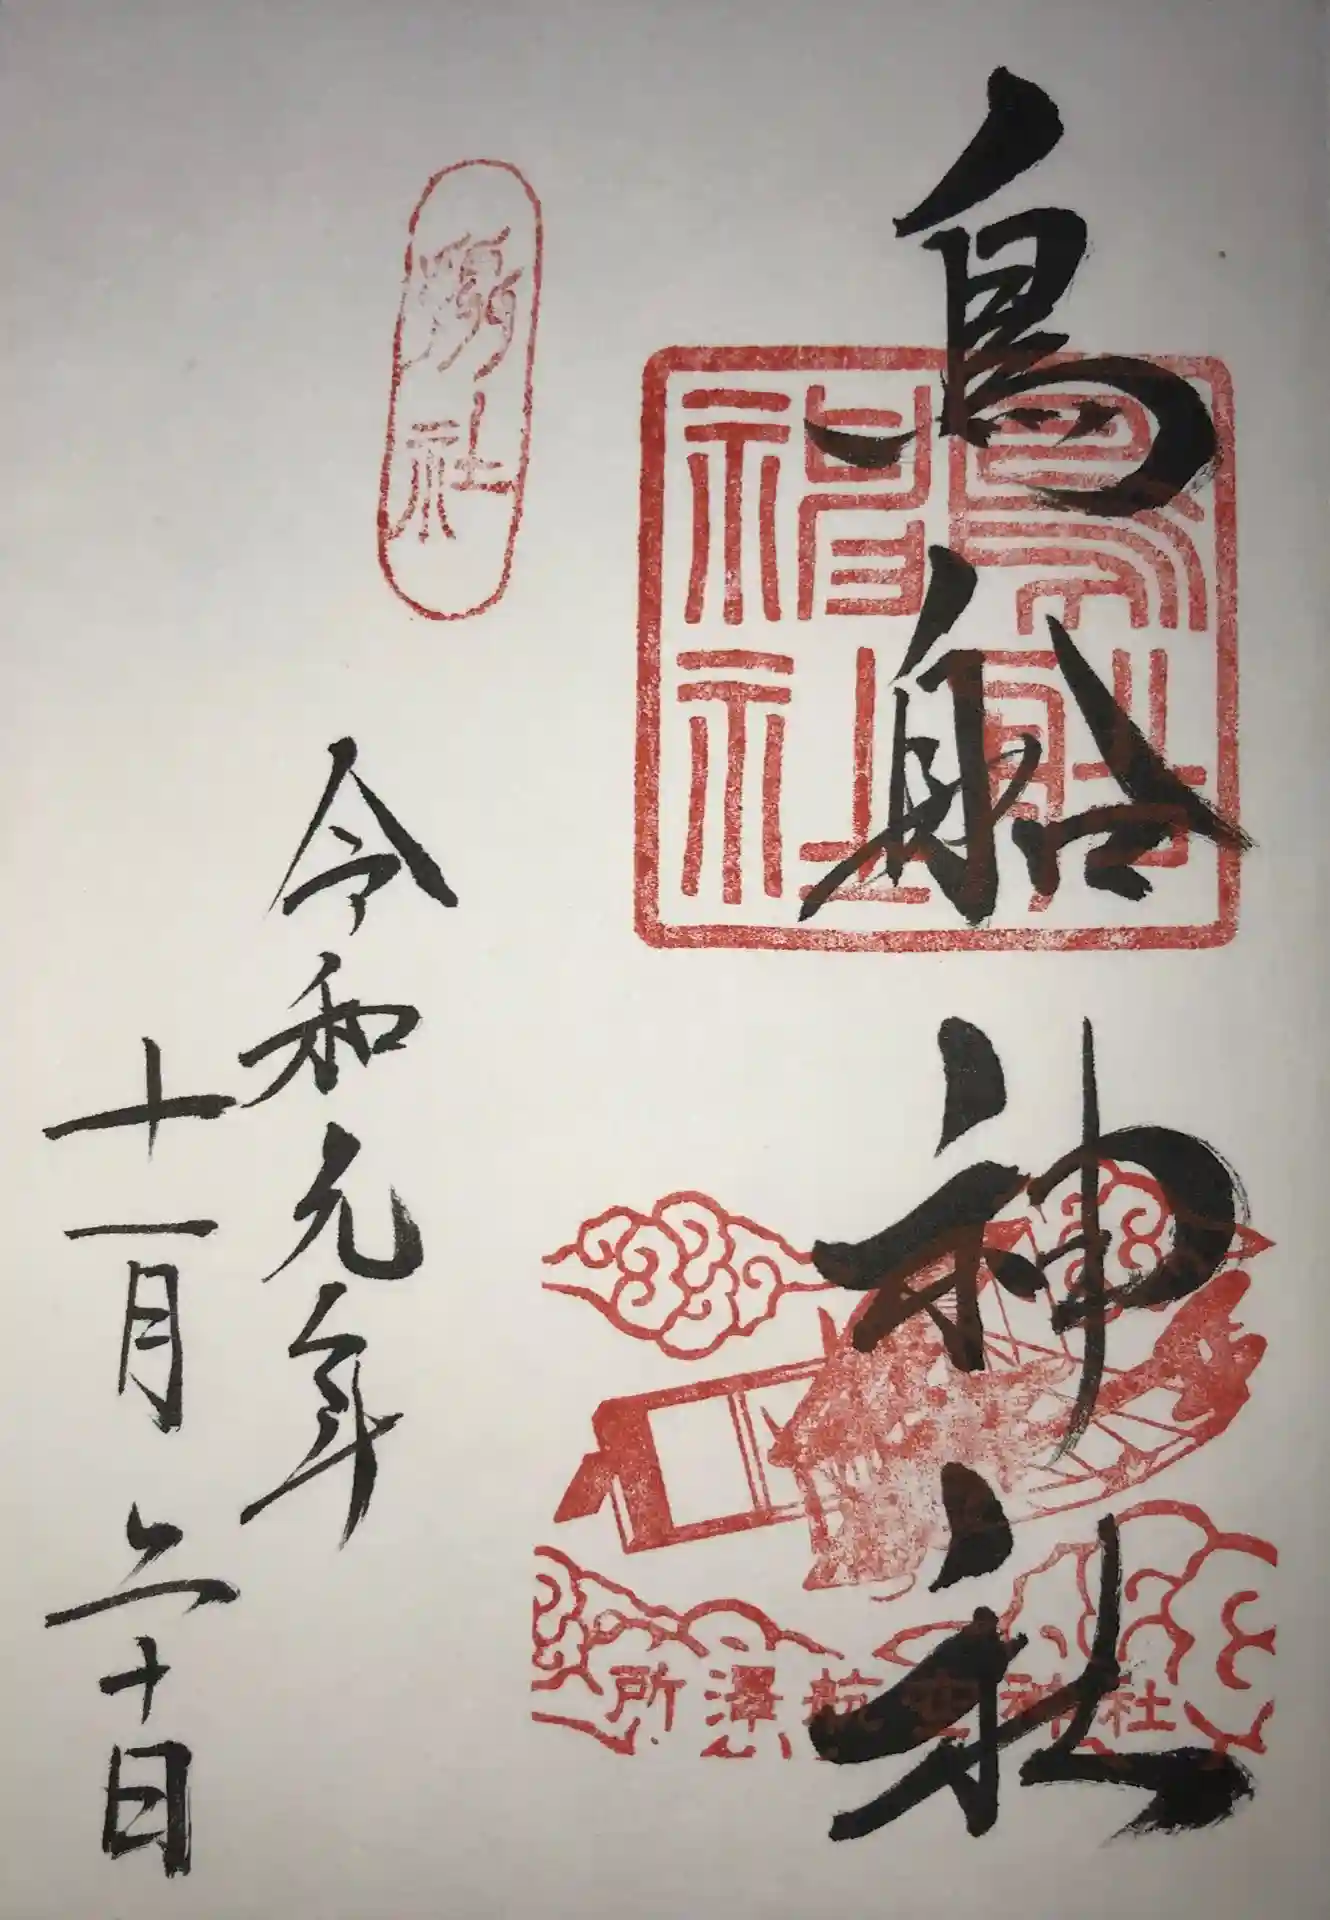 鳥船神社
鳥船
神社
所澤航空神社
令和元年
十一月二十日